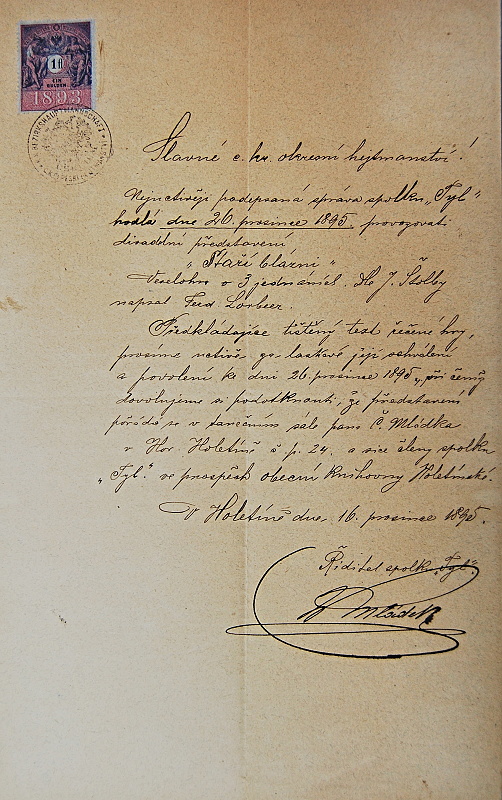 1 fl
EIN
GULDEN
1893
K.K. BEZIRKSHAUPTMANNSCHAFT
Slavné c. kr. okresní hejtmanství!
Nejuctivěji podepsaná správa spolku „Tyl“
hodlá dne 26. prosince 1895 provozovati
divadelní představení
„Staří blázni“
Veselohra o 3 jednáních. Dle J. Štolby
napsal Ferd. Lorbeer.
Předkládajíce tištěný text řečené hry,
prosíme uctivě za laskavé její schválení
a povolení ke dni 26. prosince 1895, při čemž
dovolujeme si podotknouti, že představení
pořádá se v tanečním sále pana Č. Mládka
v Hor. Holetíně č p. 24. a sice členy spolku
„Tyl“ ve prospěch obecní knihovny Holetínské.
V Holetíně dne 16. prosince 1895.
Ředitel spolku „Tyl“.
Mládek